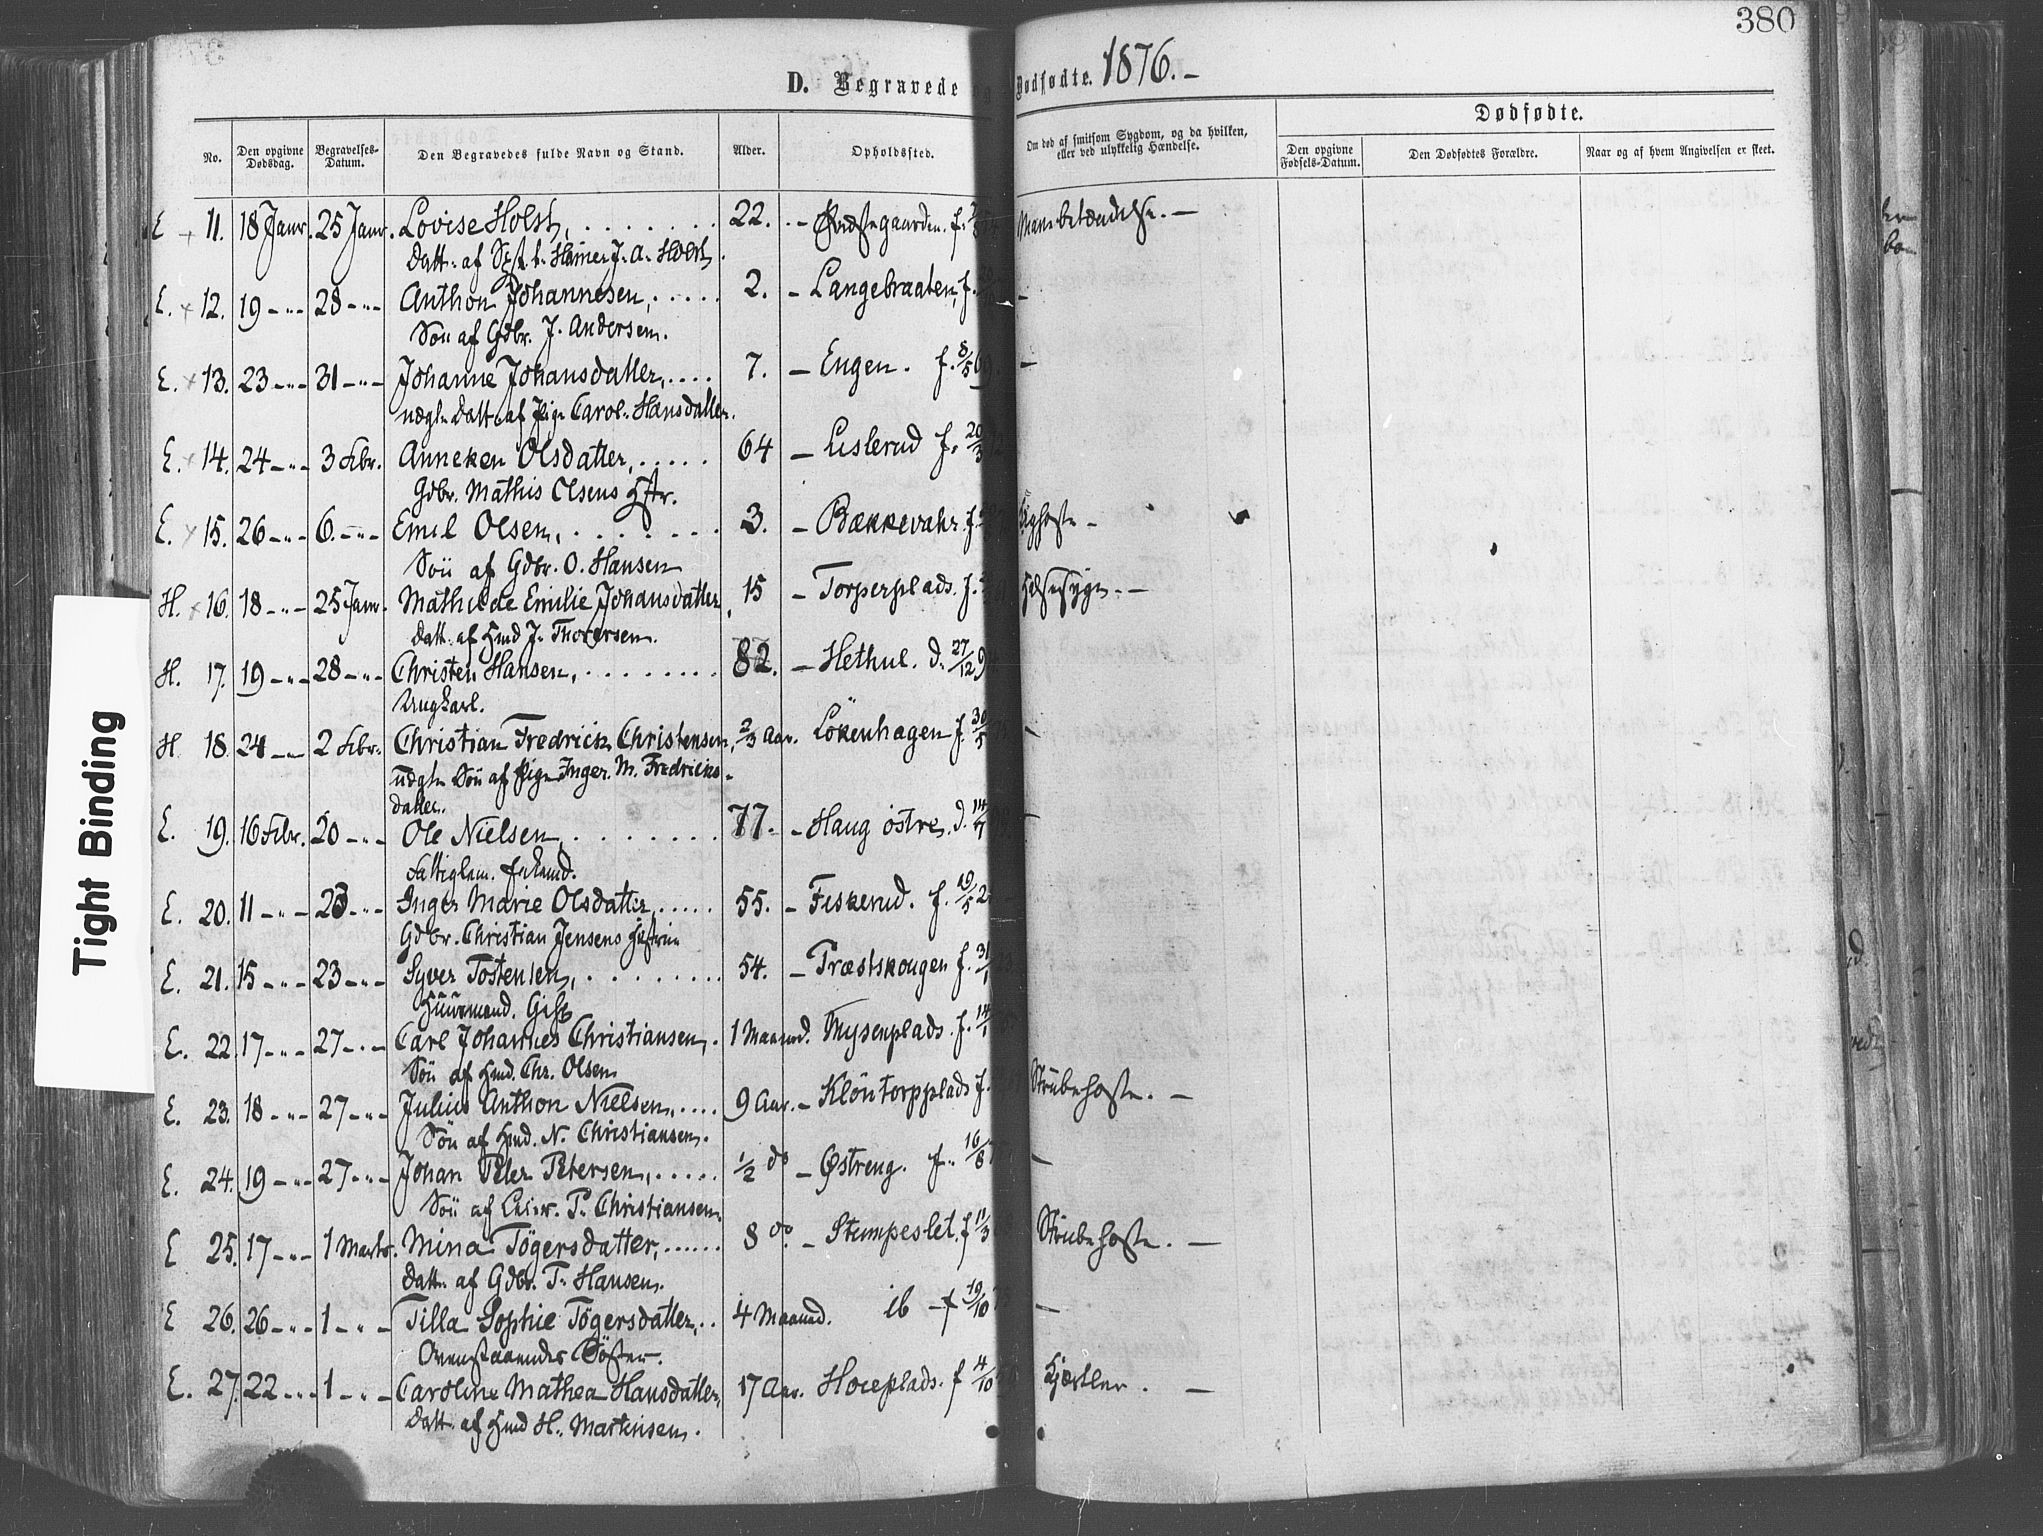 380
D. Begravede og Dødfødte. 1876.-
Dødfødte.
No.
Den opgivne Dødsdag.
Begravelses-Datum.
Den Begravedes fulde Navn og Stand.
Alder.
Opholdssted.
Om død af smitsom Sygdom, og da hvilken, eller ved ulykkelig Hændelse.
Den opgivne Fødsels-Datum.
Den Dødfødtes Forældre.
Naar og af hvem Angivelsen er skeet.
E 11. 18 Janr. 25 Janr. Lovise Holst, 22. f.
Datt. af J. A. Holst.
E. 12. 19 -"- 28 -"- Anthon Johannesen, 2. - Langebraaten, f. -
Søn af Gdbr. J. Andersen.
E. 13. 23 -"- 31 -"- Johanne Johansdatter, 7. - Engen. f. 8/5 69. -
uægte Datt. af Pige Carol. Hansdatter.
E. 14. 24 -"- 3 Febr. Anneken Olsdatter, 64 - Lislerud f. 20/3
Gdbr. Mathis Olsens Hstr.
E. 15. 26 -"- 6. -"- Emil Olsen, 3. - Bækkevahr. f. Kighoste -
Søn af Gdbr. O. Hansen
H. 16. 18 -"- 25 Janr. Mathilde Emilie Johansdatter, 15 - Torperplads. f.
Datt. af Hmd J. Thorersen.
H. 17. 19 -"- 28 -"- Christen Hansen, 82. - Hethul. d. 27/12 9
Ungkarl.
H 18. 24 -"- 2 Febr. Christian Fredrick Christensen, 2/3 Aar. Lökenhagen f. 30/5 -
uægte Søn af Pige Inger M. Fredricks-
datter.
E. 19. 16 Febr. 20 -"- Ole Nielsen, 77. - Haug östre. d. 14/7 -
Fattiglem. Enkemd.
E. 20. 11 -"- 23 -"- Inger Marie Olsdatter, 55. - Fiskerud. f. 19/5 2
Gdbr. Christian Jensens Hstru
E. 21. 15 -"- 23 -"- Syver Tostensen, 54. - Præstskougen f. 31/1
Huusmand. Gift
E. 22. 17 -"- 27 -"- Carl Johannes Christiansen, 1 Maaned. Mysenplads. f. 14/1
Søn af Hmd. Chr. Olsen
E. 23. 18 -"- 27 -"- Julius Anthon Nielsen, 9 Aar. - Klöntorpplads f. Strubehoste. -
Søn af Hmd. N. Christiansen.
E. 24. 19 -"- 27 -"- Johan Peter Petersen, 1/2 do - Østreng. f. 16/8 -
Søn af P. Christiansen.
E 25. 17 -"- 1 Marts. Mina Tögersdatter, 8 do. - Stumpeslet. f 11/3 Strubehoste. -
Datt. af Gdbr. T. Hansen.
E 26. 26 -"- 1 -"- Tilla Sophie Tögersdatter, 4 Maaned. ib - f 19/10 -
Ovenstaaendes Söster.
E. 27. 22 -"- 1 -"- Caroline Mathea Hansdatter, 17 Aar. Hoieplads. f 4/10 Kjertler. -
Datt. af Hmd H. Martinsen.
Tight Binding